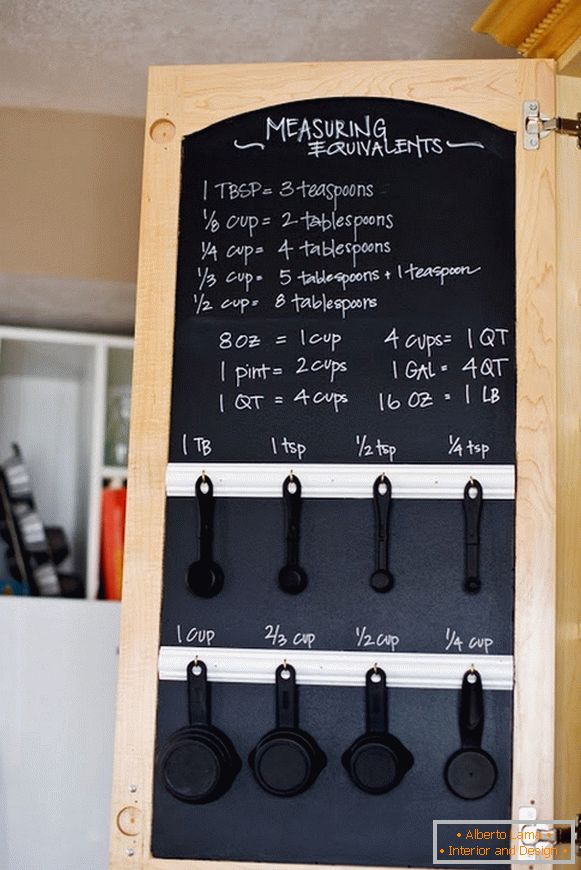 MEASURING
EQUIVALENTS
1 TBSP = 3 teaspoons
1/8 cup = 2 tablespoons
1/4 cup = 4 tablespoons
1/3 cup = 5 tablespoons + 1 teaspoon
1/2 cup = 8 tablespoons
8 OZ = 1 cup
1 pint = 2 cups
1 QT = 4 cups
4 cups = 1 QT
1 GAL = 4 QT
16 OZ = 1 LB
1 TB 1 tsp 1/2 tsp 1/4 tsp
1 cup 2/3 cup 1/2 cup 1/4 cup
• Alberto Lama •
• Interior and Design •